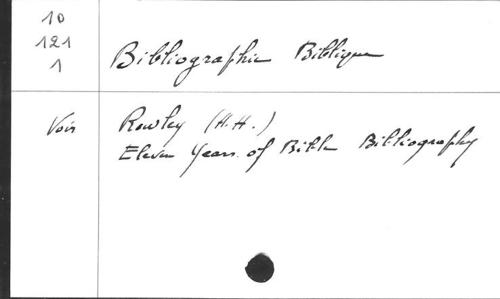 10
121
1
Bibliographie Biblique
Voir
Rowley (H.H.)
Eleven Years of Bible Bibliography